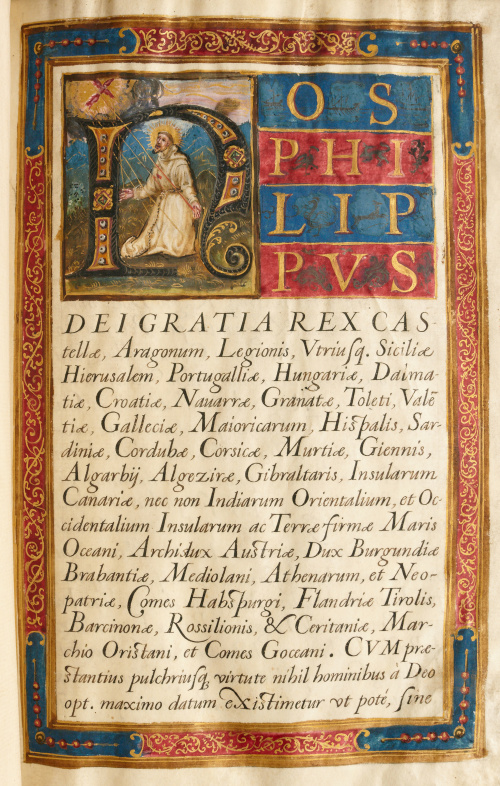 NOS
PHI
LIP
PVS
DEI GRATIA REX CAS-
tellæ, Aragonum, Legionis, Vtriusq. Siciliæ
Hierusalem, Portugalliæ, Hungariæ, Dalma-
tiæ, Croatiæ, Nauarræ, Granatæ, Toleti, Valẽ
tiæ, Galleciæ, Maioricarum, Hispalis, Sar-
diniæ, Cordubæ, Corsicæ, Murtiæ, Giennis,
Algarbij, Algeziræ, Gibraltaris, Insularum
Canariæ, nec non Indiarum Orientalium, et Oc-
cidentalium Insularum ac Terræ firmæ Maris
Oceani, Archidux Austriæ, Dux Burgundiæ
Brabantiæ, Mediolani, Athenarum, et Neo-
patriæ, Comes Habspurgi, Flandriæ Tirolis,
Barcinonæ, Rossilionis, & Ceritaniæ, Mar-
chio Oristani, et Comes Goceani. CVM præ-
stantius pulchriusq, virtute nihil hominibus à Deo
opt. maximo datum existimetur vt poté, sine